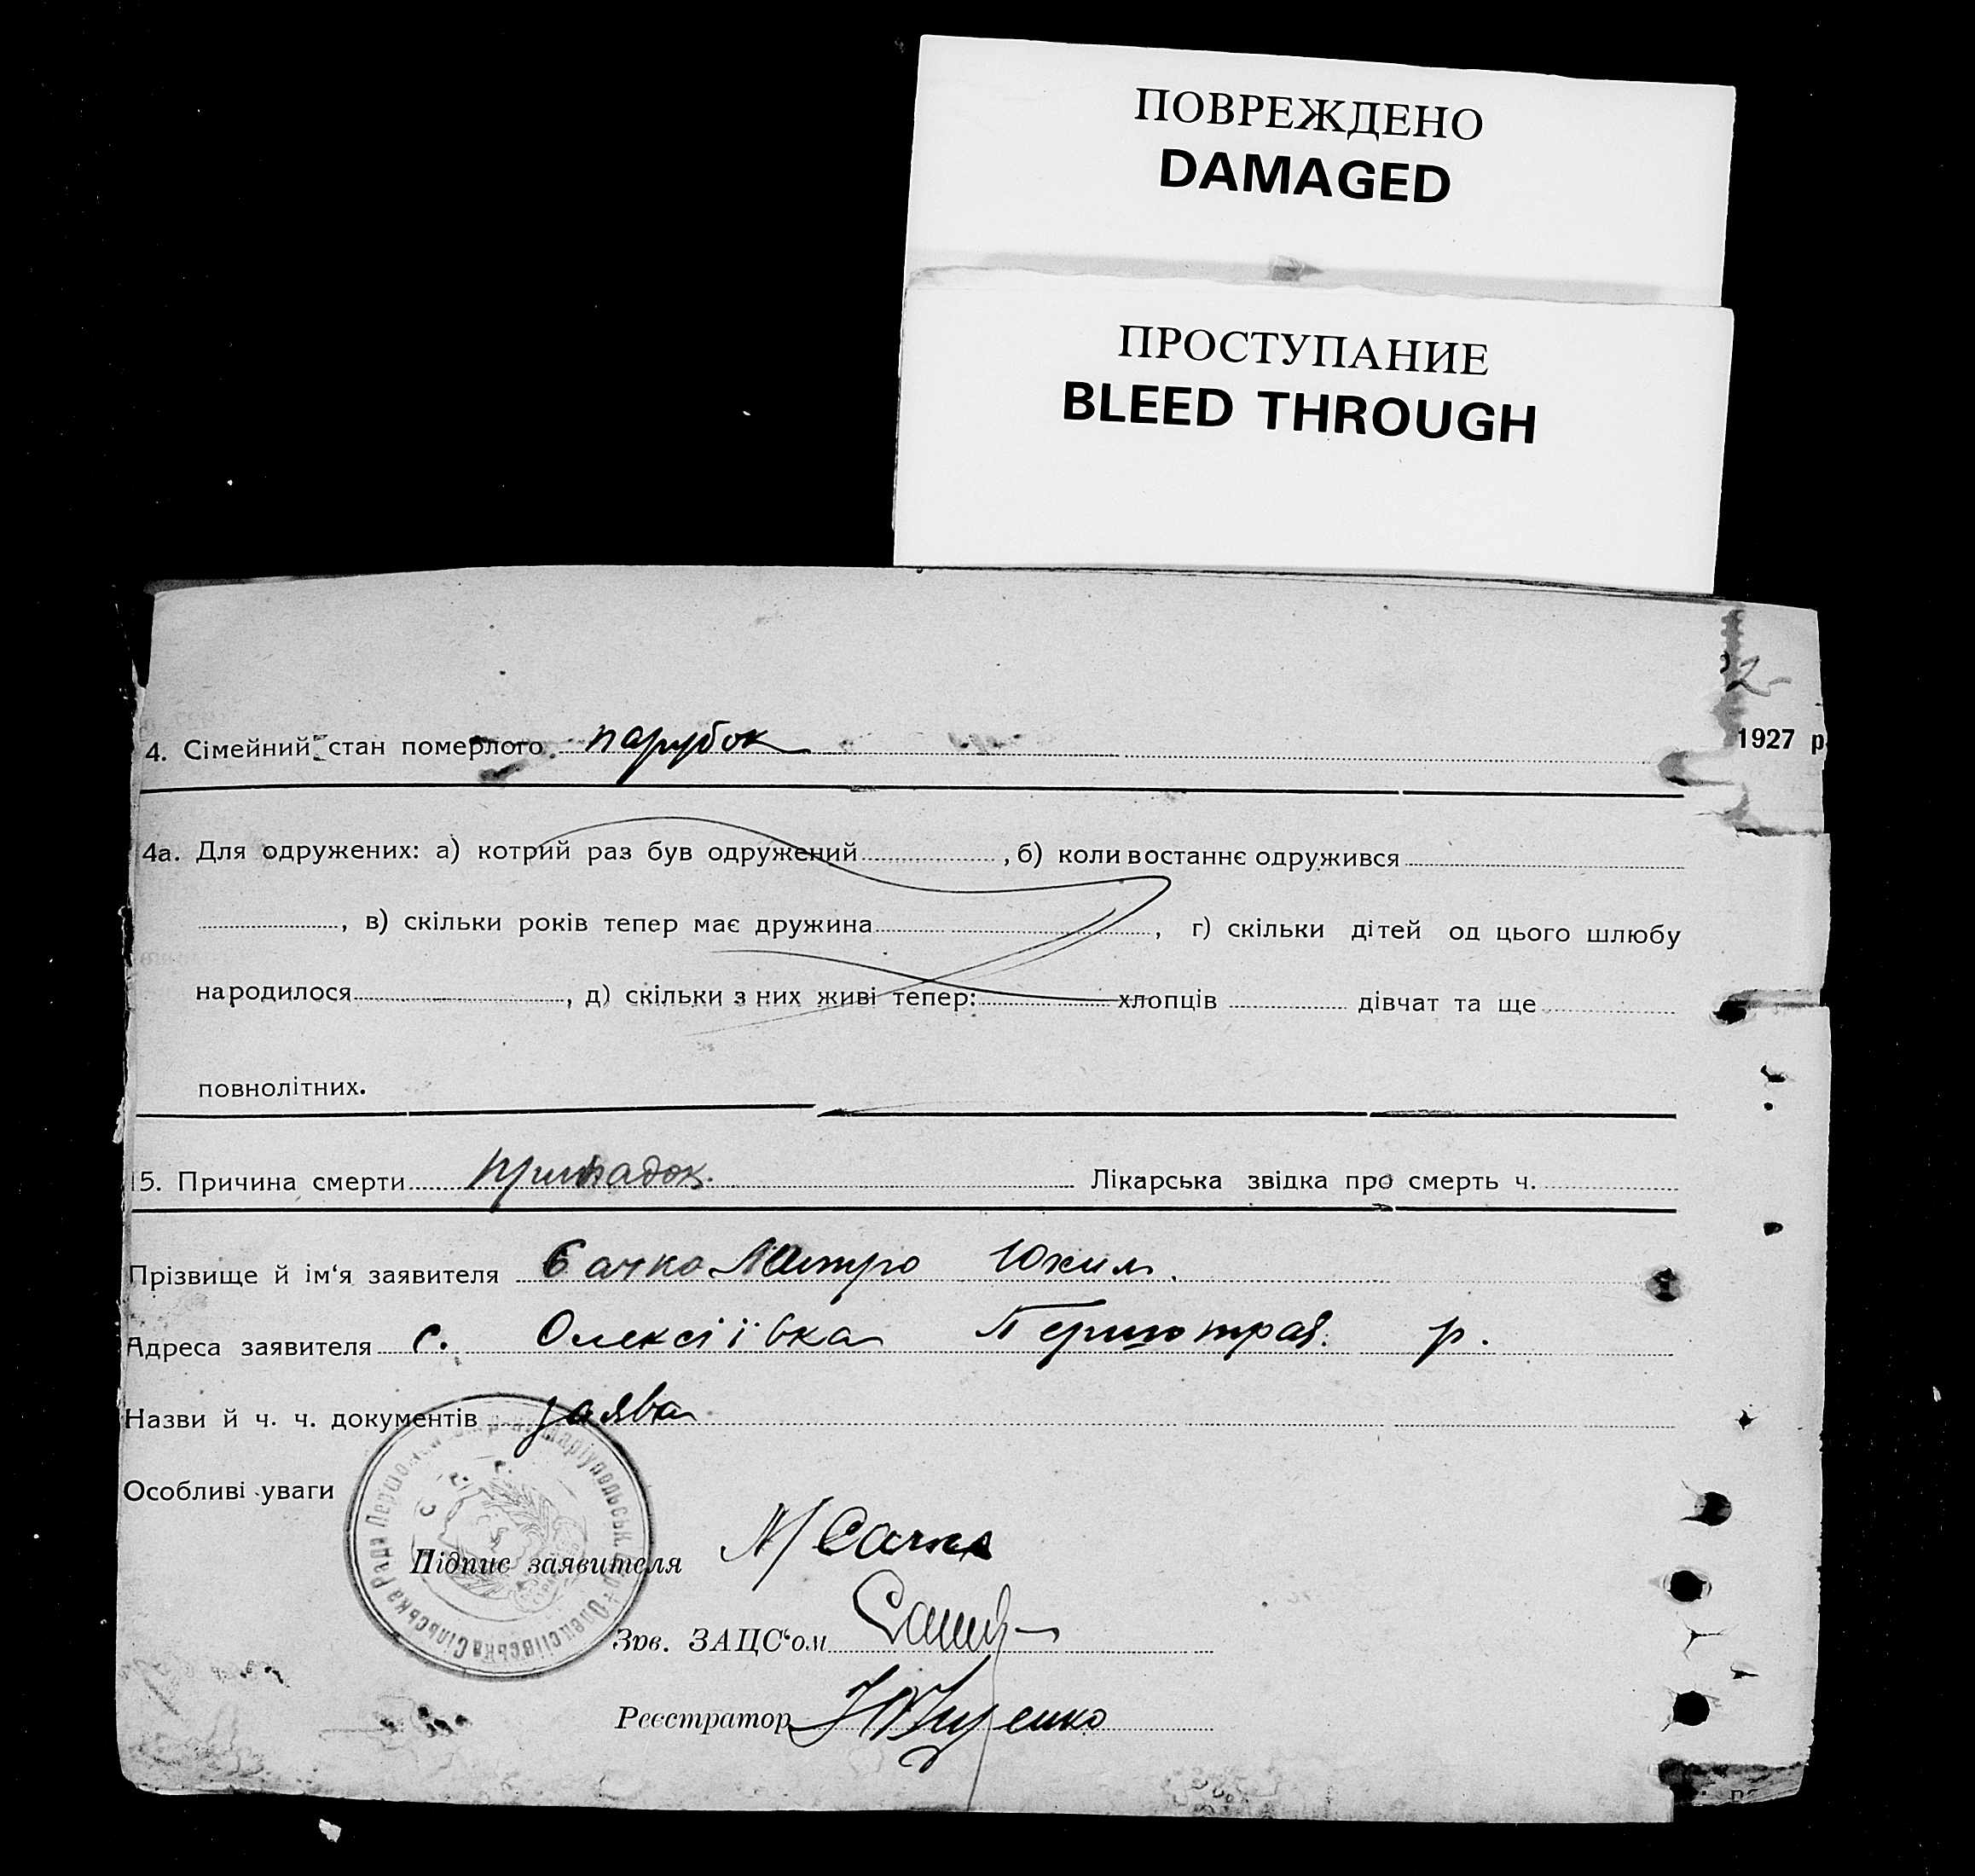 ПОВРЕЖДЕНО
DAMAGED
ПРОСТУПАНИЕ
BLEED THROUGH
2
4. Сімейний стан померлого парубок
1927 р.
4а. Для одружених: а) котрий раз був одружений , б) коли востаннє одружився
, в) скільки років тепер має дружина , г) скільки дітей од цього шлюбу
народилося , д) скільки з них живі тепер: хлопців дівчат та ще
повнолітних.
15. Причина смерти припадок. Лікарська звідка про смерть ч.
Прізвище й ім‘я заявителя Сачко Митро Юхим.
Адреса заявителя с. Олексіївка Першотрав. р.
Назви й ч. ч. документів заява
Особливі уваги
Олексіївська Сільська Рада Маріупольськ.
Підпис заявителя М Сачко
Зав. ЗАЦС‘ом
Реєстратор